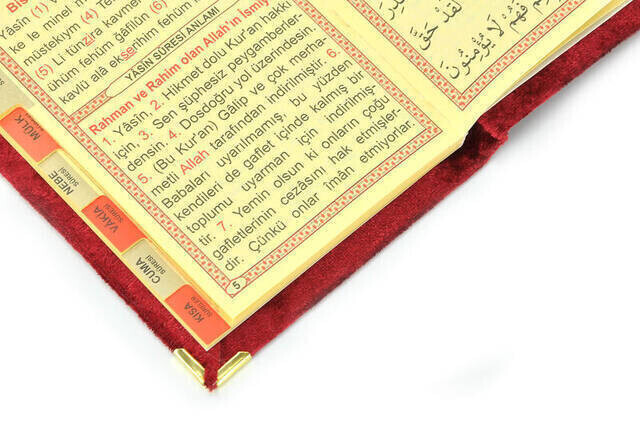 Yâsîn (1)
ke le minel m
müstekıym (4) Te
(5) Li tünzira kavmen
ühüm fehüm ğâfilûn (6)
kavlü alâ ekserihim fehüm
YASİN SÛRESİ ANLAMI
Rahman ve Rahim olan Allah'ın ismiy
1. Yâsîn, 2. Hikmet dolu Kur'an hakkı
için, 3. Sen şüphesiz peygamberler-
densin. 4. Dosdoğru yol üzerindesin.
5. (Bu Kur'an) Gâlip ve çok merha-
metli Allah tarafından indirilmiştir. 6.
Babaları uyarılmamış, bu yüzden
kendileri de gaflet içinde kalmış bir
toplumu uyarman için indirilmiş-
tir. 7. Yemin olsun ki onların çoğu
gafletlerinin cezâsını hak etmişler-
dir. Çünkü onlar imân etmiyorlar.
5
لَقَدْ حَقَّ
فَهُمْ لَا يُؤْمِنُونَ
MÜLK
NEBE
SÛRESİ
VÂKIA
SÛRESİ
CUMA
SÛRESİ
KISA
SÛRELER